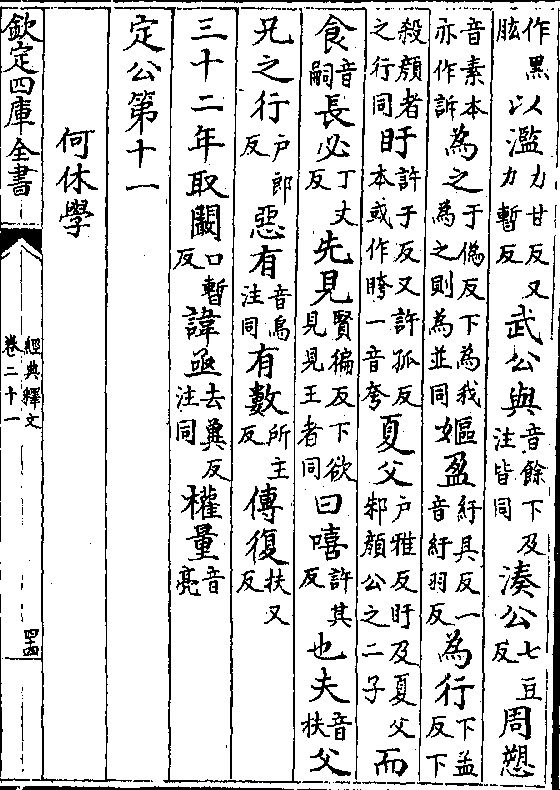 作黑肱以濫力甘反又力暫反武公與音餘下及注皆同湊公七豆反周愬
音素本亦作訴為之于偽反下為我為之則為並同嫗盈紆具反一音紆羽反為行下孟反下
殺顏者之行同盱許于反又許孤反本或作䀕一音夸夏父户雅反盱及夏父邾顏公之二子而
食音嗣長必丁丈反先見賢徧反下欲見見王者同曰嘻許其反也夫音扶父
兄之行户郎反惡有音烏注同有數所主反傳復扶又反
三十二年取闞口暫反諱亟去冀反注同權量音亮
定公第十一
何休學
欽定四庫全書
經典釋文
卷二十一
四十四